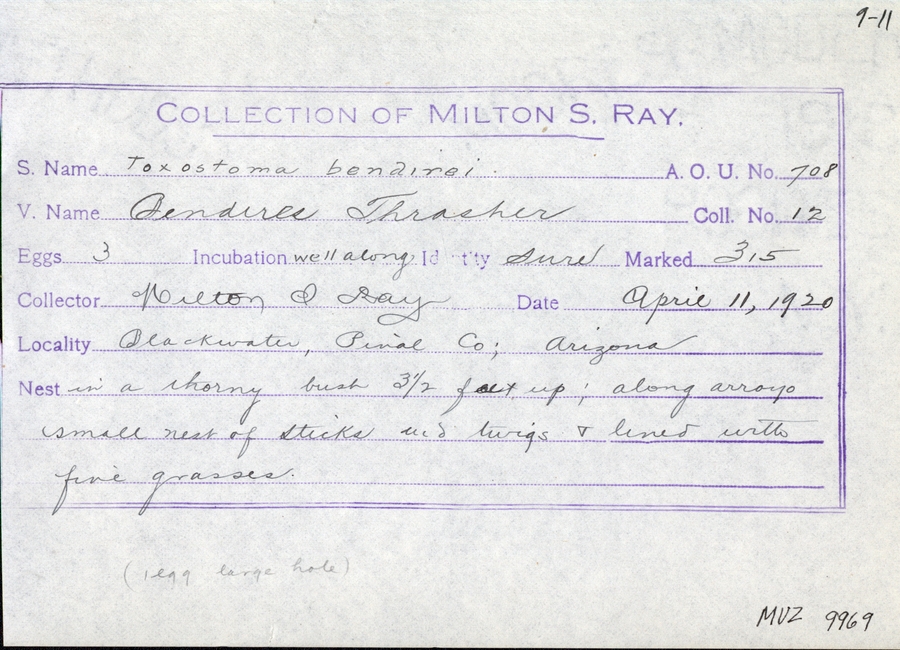 9-11
COLLECTION OF MILTON S. RAY.
S. Name Toxostoma bendirei. A. O. U. No. 708
V. Name Bendires Thrasher Coll. No. 12
Eggs 3 Incubation well along Id t'ty Sure Marked 3/5
Collector Milton S Ray Date April 11, 1920
Locality Blackwater, Pinal Co; Arizona
Nest in a thorny bush 3 1/2 feet up; along arroyo
small nest of sticks and twigs & lined with
fine grasses.
(1 egg large hole)
MVZ 9969